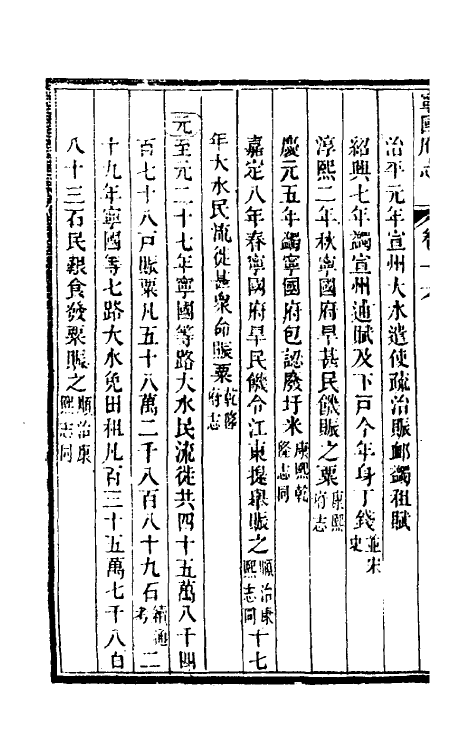 寧國府志 卷十六
治平元年宣州大水遣使疏治賑䘏蠲租賦
紹興七年蠲宣州逋賦及下戸今年身丁錢並宋史
淳熙二年秋寧國府旱甚民饑賑之粟康熙府志
慶元五年蠲寧國府包認廢圩米康熙乾隆志同
嘉定八年春寧國府旱民饑令江東提舉賑之順治康熙志同十七
年大水民流徙甚衆命賑粟乾隆府志
元至元二十七年寧國等路大水民流徙共四十五萬八千四
百七十八戸賑粟凡五十八萬二千八百八十九石續通考二
十九年寧國等七路大水免田租凡百三十五萬七千八百
八十三石民艱食發粟賑之順治康熙志同